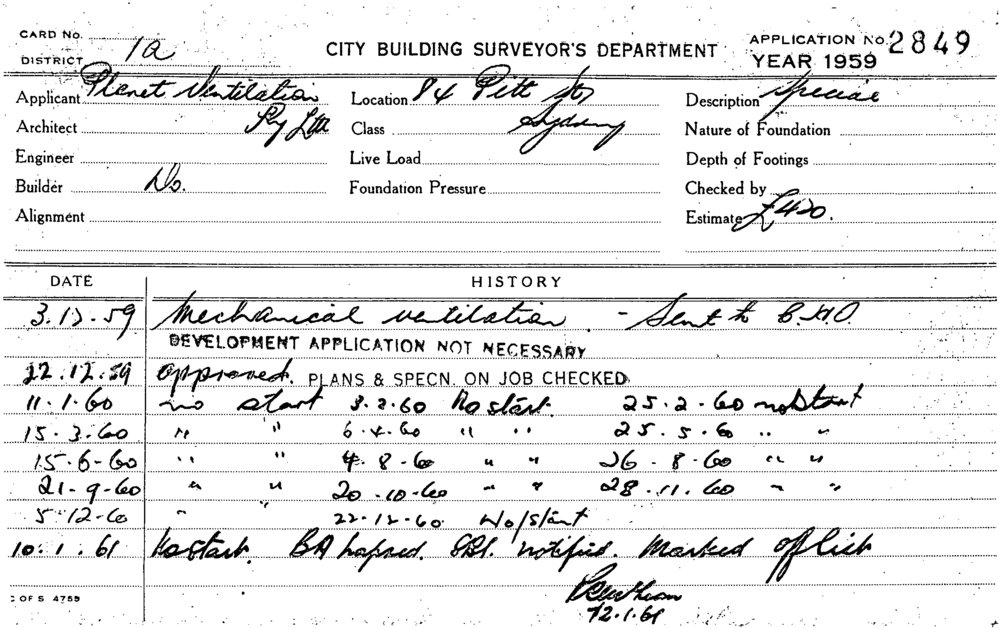 CARD No.
DISTRICT 1a
CITY BUILDING SURVEYOR'S DEPARTMENT
APPLICATION No. 2849
YEAR 1959
Applicant Planet Ventilation
Pty Ltd
Architect
Engineer
Builder Do.
Alignment
Location 84 Pitt St
Sydney
Class
Live Load
Foundation Pressure
Description Special
Nature of Foundation
Depth of Footings
Checked by
Estimate £420.
DATE HISTORY
3.12.59 Mechanical ventilation - Sent to C.H.O.
DEVELOPMENT APPLICATION NOT NECESSARY
22.12.59 approved. PLANS & SPECN. ON JOB CHECKED
11.1.60 no start 3.2.60 No start. 25.2.60 no start
15.3.60 " " 6.4.60 " " 25.5.60 " "
15.6.60 " " 4.8.60 " " 26.8.60 " "
21.9.60 " " 20.10.60 " " 28.11.60 " "
5.12.60 " " 22.12.60. No/start
10.1.61 No start. BA lapsed. notified. Marked off list
12.1.61
C OF S 4755